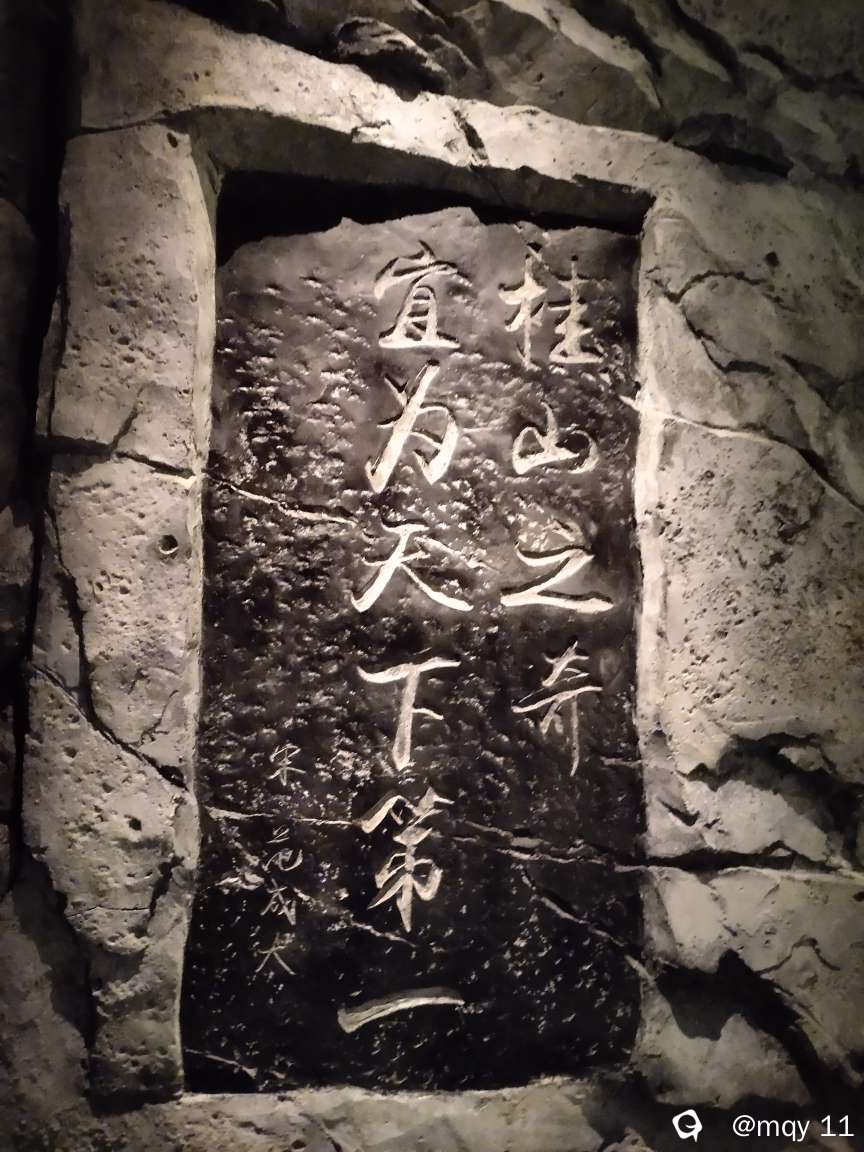 桂山之奇
宜为天下第一
宋 范成大
@mqy 11